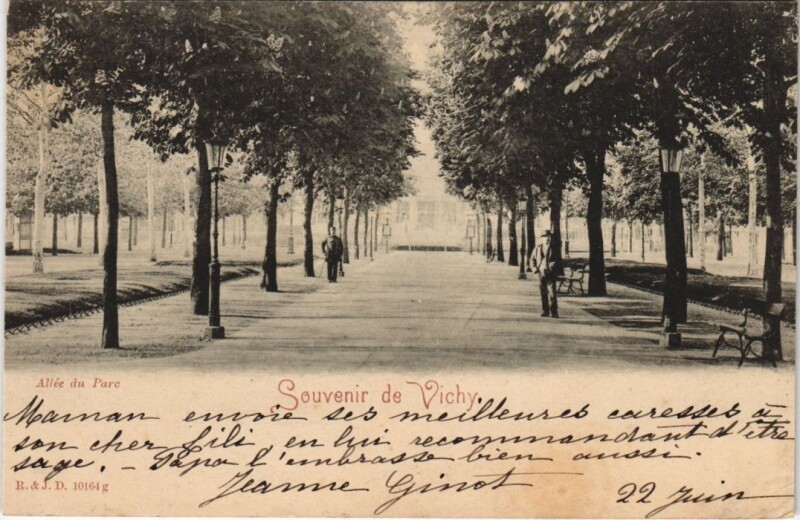 Allée du Parc
Souvenir de Vichy
Maman envoie ses meilleures caresses à
son cher fils, en lui recommandant d'être
sage. - Papa l'embrasse bien aussi.
R. & J. D. 10164 g
Jeanne Ginot 22 Juin